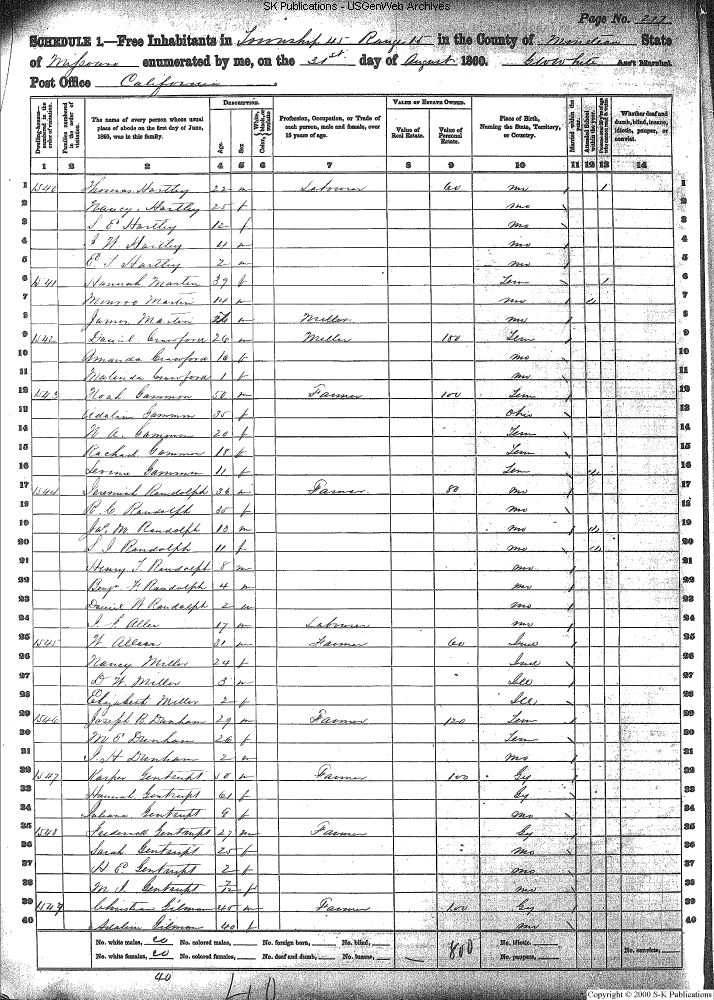 SK Publications - USGenWeb Archives
Page No. 217
SCHEDULE 1.—Free Inhabitants in Township 45 Range 15 in the County of State
of Missouri enumerated by me, on the 21st day of August 1860. Ass't Marshal.
Post Office California
DESCRIPTION. VALUE OF ESTATE OWNED.
Dwelling-houses—numbered in the order of visitation. Families numbered in the order of visitation. The name of every person whose usual place of abode on the first day of June, 1860, was in this family. Age. Sex Color, White, black, or mulatto Profession, Occupation, or Trade of each person, male and female, over 15 years of age. Value of Real Estate. Value of Personal Estate. Place of Birth, Naming the State, Territory, or Country. Married within the year. Attended School within the year. Whether deaf and dumb, blind, insane, idiotic, pauper, or convict.
1 2 3 4 5 6 7 8 9 10 11 12 13 14
1 1540 Thomas Hartley 22 m Labourer 60 mo 1 1
2 Nancy Hartley 25 f mo 2
3 S E Hartley 12 f mo 3
4 J W Hartley 11 m mo 4
5 E S Hartley 2 m mo 5
6 1541 Hannah Martin 39 f Tenn 1 6
7 Monroe Martin 14 m mo 7
8 James Martin m Miller mo 8
9 1542 Daniel Crawford 26 m Miller 150 Tenn 9
10 Amanda Crawford 16 f mo 10
11 Malinda Crawford 1 f mo 11
12 1543 Noah Gammon 50 m Farmer 100 Tenn 12
13 Adalin Gammon 35 f Ohio 13
14 Gammon 20 f Tenn 14
15 Rachael Gammon 18 f Tenn 15
16 Levina Gammon 11 f Tenn 16
17 1544 Jeremiah Randolph 36 m Farmer 80 mo 17
18 R C Randolph 35 f mo 18
19 Jas M Randolph 13 m mo 19
20 S J Randolph 11 f mo 20
21 Henry T Randolph 8 m mo 21
22 Benj F Randolph 4 m mo 22
23 Daniel W Randolph 2 m mo 23
24 J F Allen 17 m Labourer mo 24
25 1545 W 31 m Farmer 60 Ind 25
26 Nancy Miller 24 f Ind 26
27 D W Miller 3 m Ill 27
28 Elizabeth Miller 2 f Ill 28
29 1546 Joseph B Dunham 29 m Farmer 120 Tenn 29
30 M E Dunham 26 f Tenn 30
31 J H Dunham 2 m mo 31
32 1547 Kasper Gentrupt 50 m Farmer 100 Gy 32
33 Hannah Gentrupt 61 f Gy 33
34 Gentrupt 9 f mo 34
35 1548 Frederick Gentrupt 27 m Farmer Gy 35
36 Sarah Gentrupt 25 f mo 36
37 H E Gentrupt 2 f mo 37
38 M J Gentrupt 7/12 f mo 38
39 1549 Christian Gilman 45 m Farmer 100 Gy 39
40 Adalin Gilman 40 f mo 40
No. white males, 20 No. colored males, No. foreign born, No. blind, 800 No. idiotic, No. convicts,
No. white females, 20 No. colored females, No. deaf and dumb, No. insane, No. paupers,
40
40
Copyright © 2000 S-K Publications